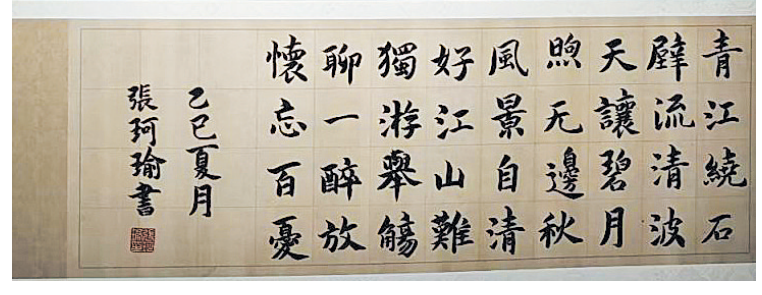 青江繞石
壁流清波
天讓碧月
煦无邊秋
風景自清
好江山難
獨游舉觴
聊一醉放
懷忘百憂
乙巳夏月
張珂瑜書